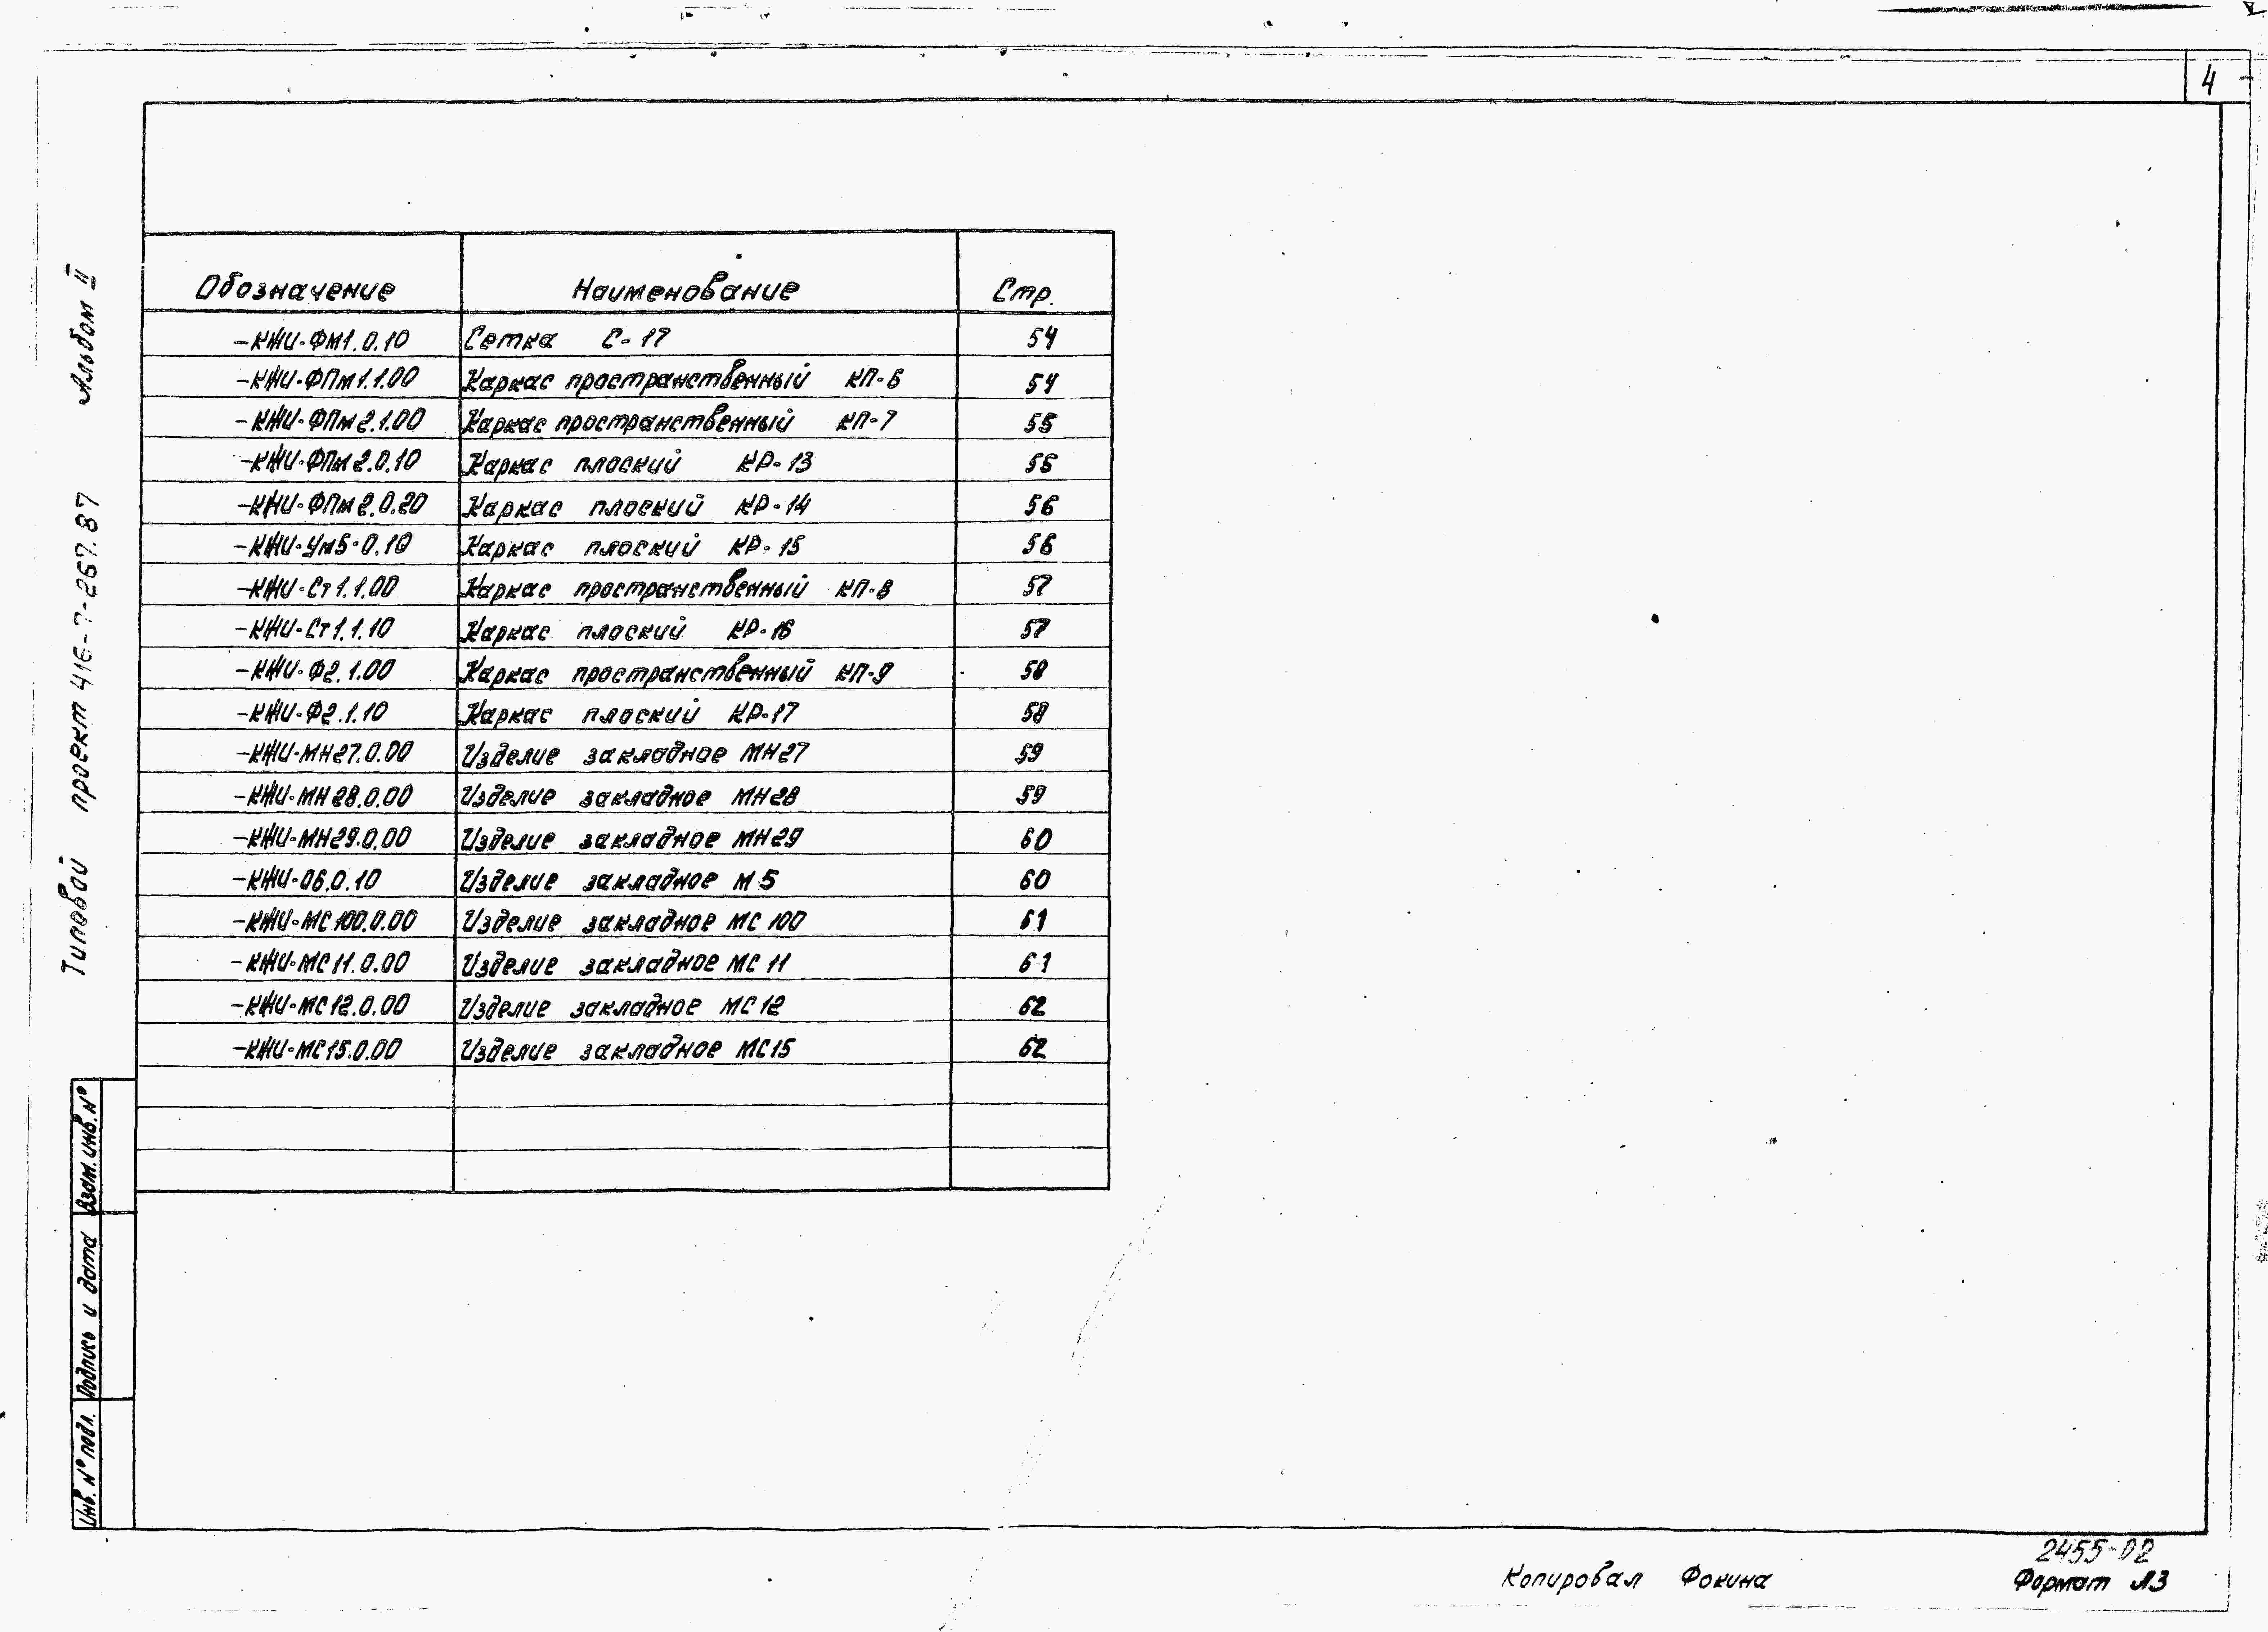 4
Обозначение Наименование Стр.
-КЖИ-ФМ1.0.10 Сетка С-17 54
-КЖИ-ФПм1.1.00 Каркас пространственный КП-6 54
-КЖИ-ФПм2.1.00 Каркас пространственный КП-7 55
-КЖИ-ФПм2.0.10 Каркас плоский КР-13 55
-КЖИ-ФПм2.0.20 Каркас плоский КР-14 56
-КЖИ-Ум5-0.10 Каркас плоский КР-15 56
-КЖИ-Ст1.1.00 Каркас пространственный КП-8 57
-КЖИ-Ст1.1.10 Каркас плоский КР-16 57
-КЖИ-Ф2.1.00 Каркас пространственный КП-9 58
-КЖИ-Ф2.1.10 Каркас плоский КР-17 58
-КЖИ-МН27.0.00 Изделие закладное МН27 59
-КЖИ-МН28.0.00 Изделие закладное МН28 59
-КЖИ-МН29.0.00 Изделие закладное МН29 60
-КЖИ-06.0.10 Изделие закладное М5 60
-КЖИ-МС100.0.00 Изделие закладное МС100 61
-КЖИ-МС11.0.00 Изделие закладное МС11 61
-КЖИ-МС12.0.00 Изделие закладное МС12 62
-КЖИ-МС15.0.00 Изделие закладное МС15 62
Типовой проект 416-7-267.87 Альбом II
Инв. № подл. Подпись и дата Взам. инв. №
2455-02
Копировал Фокина Формат А3